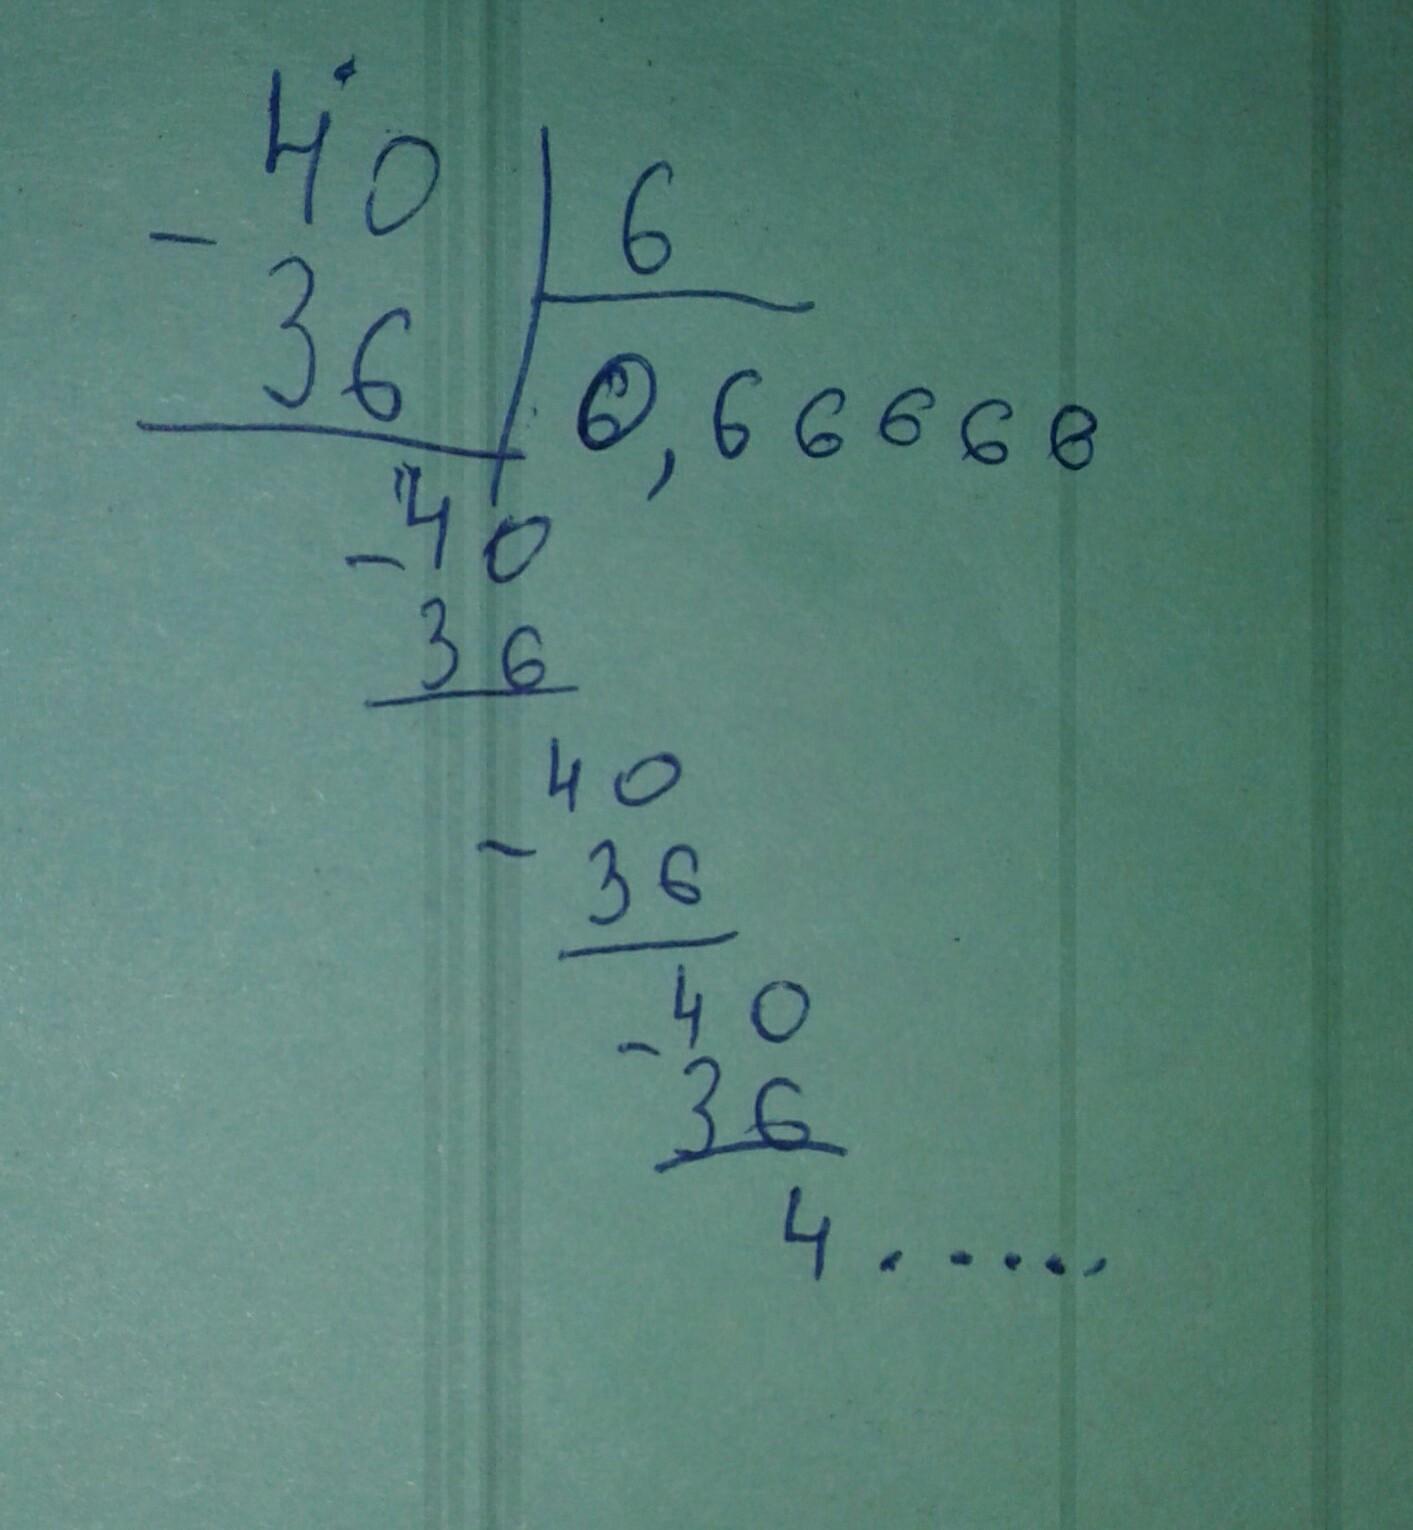 40 6
- 36 6,66666
- 40
36
40
- 36
- 40
36
4.....